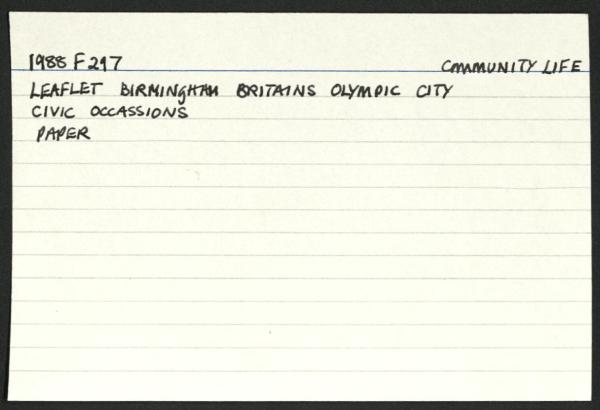 1988 F297 COMMUNITY LIFE
LEAFLET BIRMINGHAM BRITAINS OLYMPIC CITY
CIVIC OCCASSIONS
PAPER